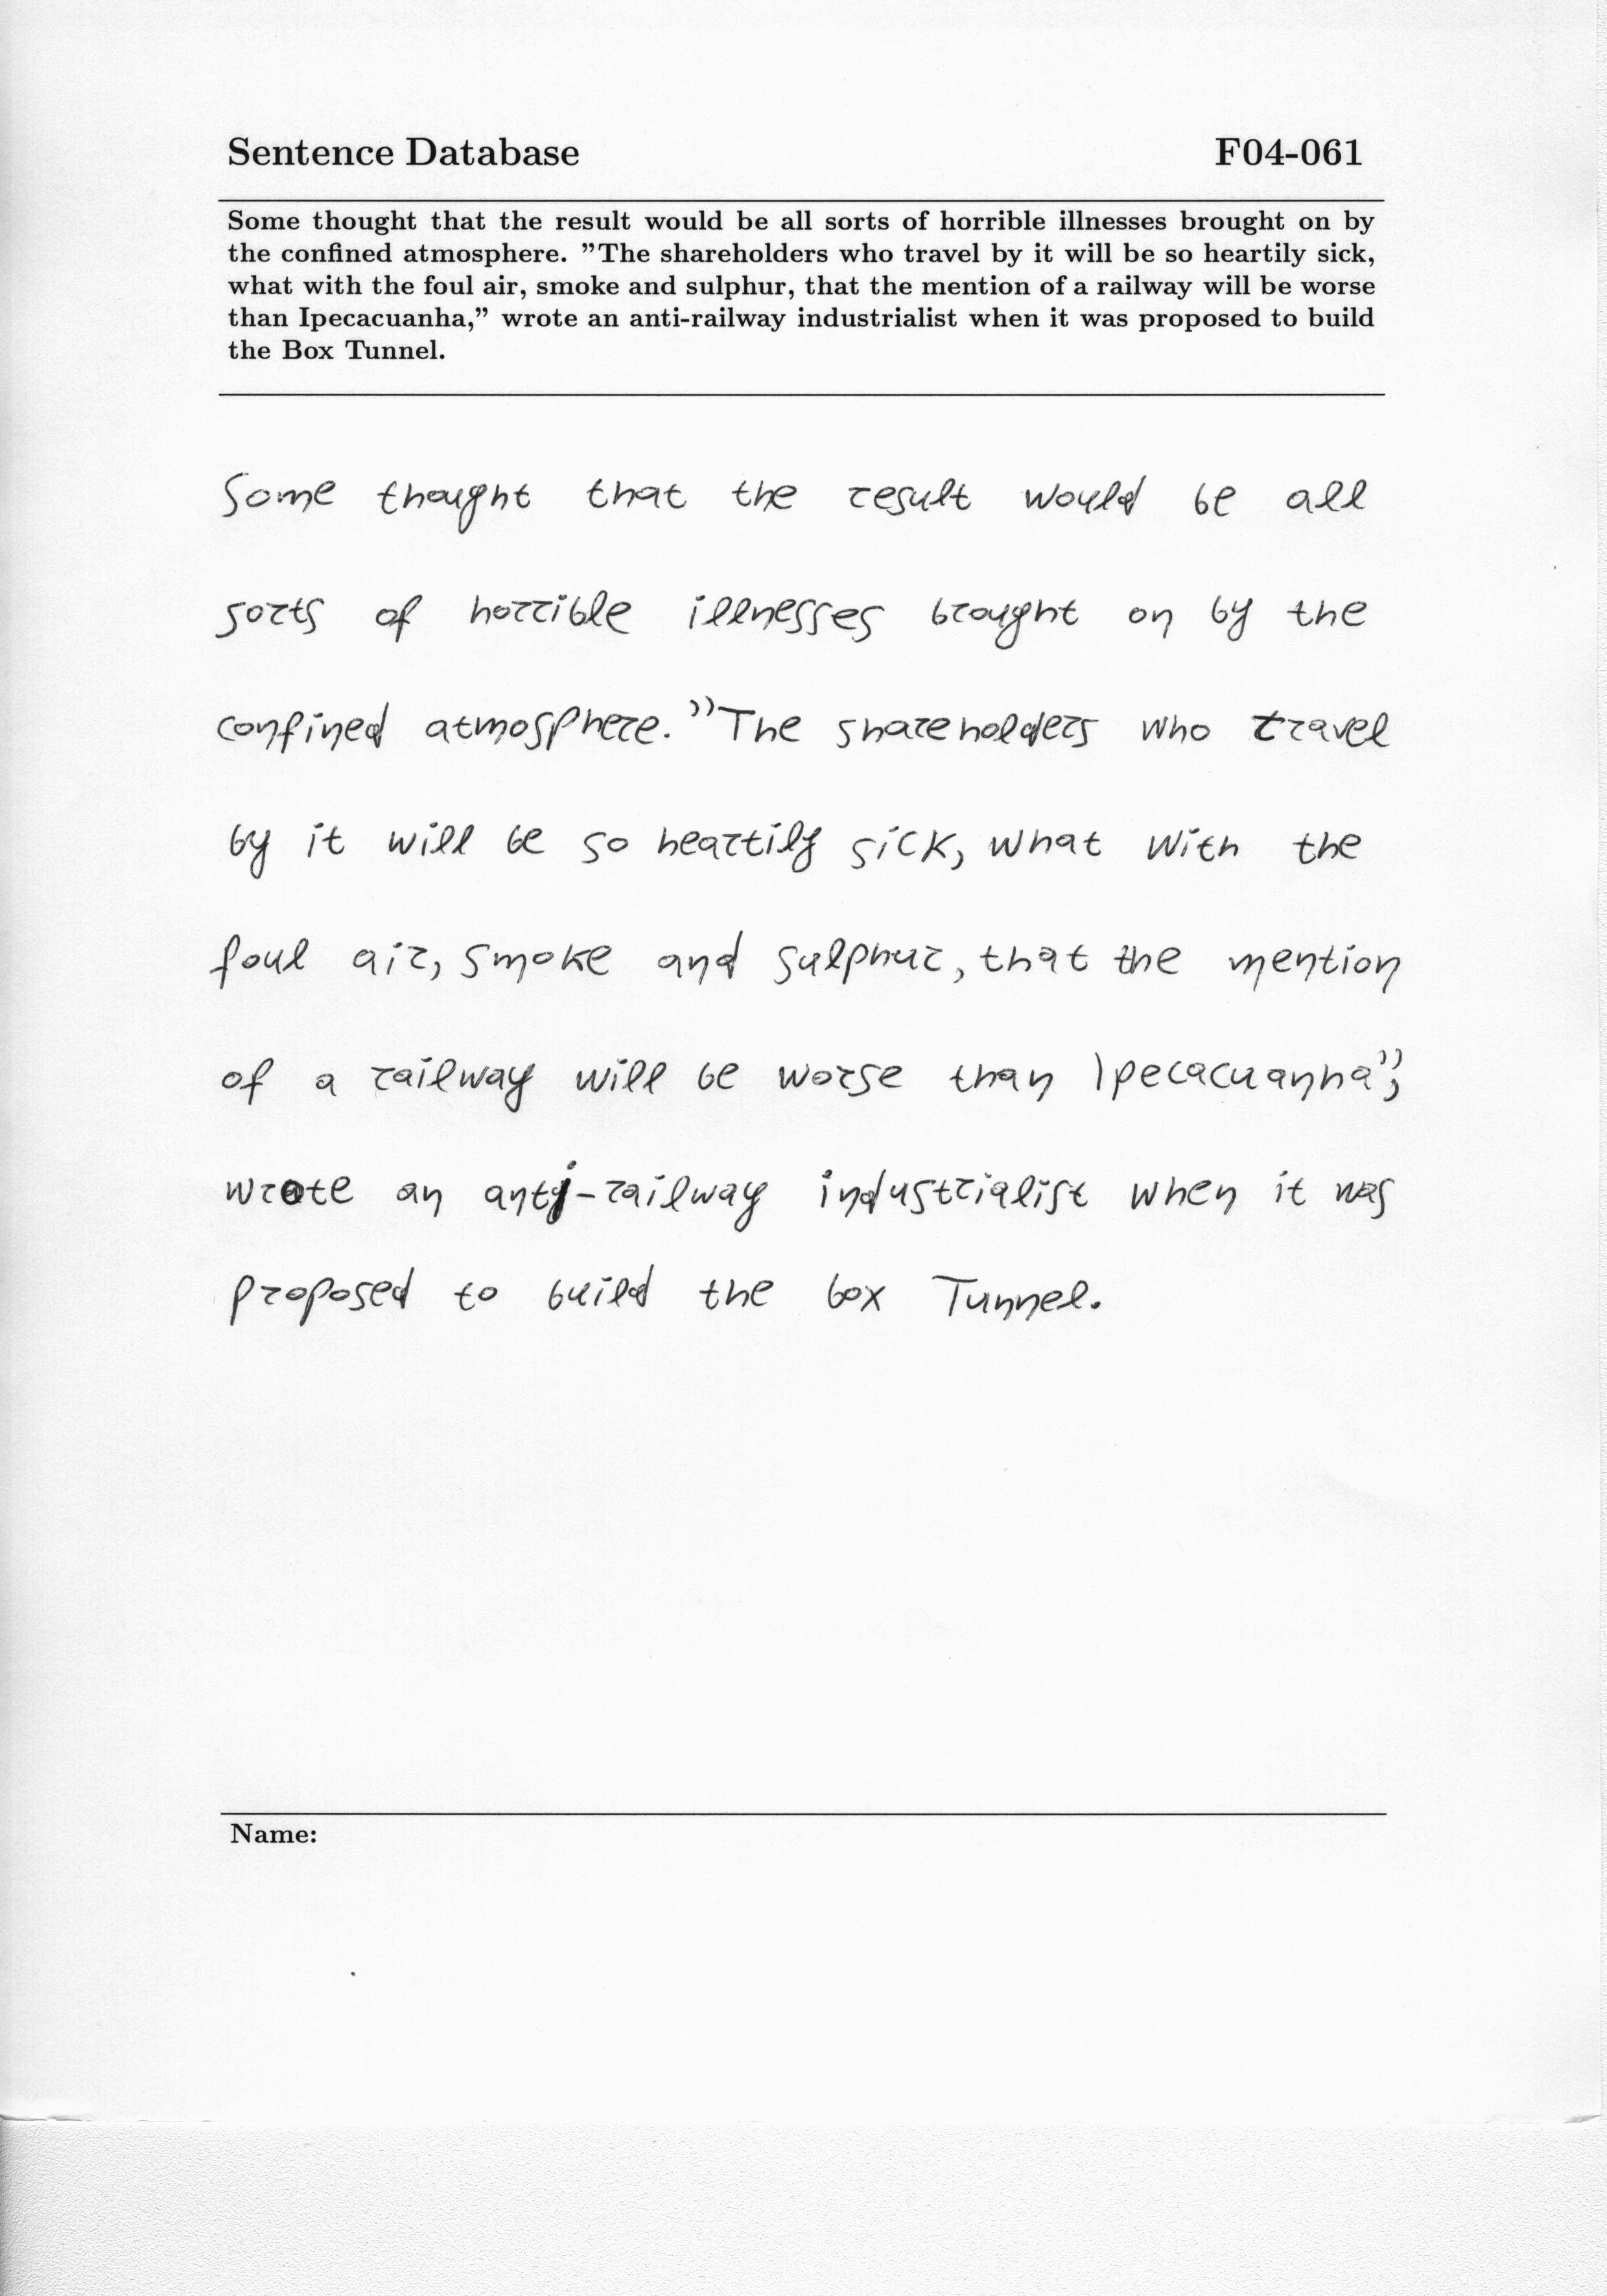 Sentence Database F04-061
Some thought that the result would be all sorts of horrible illnesses brought on by
the confined atmosphere. ”The shareholders who travel by it will be so heartily sick,
what with the foul air, smoke and sulphur, that the mention of a railway will be worse
than Ipecacuanha,” wrote an anti-railway industrialist when it was proposed to build
the Box Tunnel.
Some thought that the result would be all
sorts of horrible illnesses brought on by the
confined atmosphere. ”The shareholders who travel
by it will be so heartily sick, what with the
foul air, smoke and sulphur, that the mention
of a railway will be worse than Ipecacuanha”,
wrote an anti-railway industrialist when it was
proposed to build the box Tunnel.
Name: